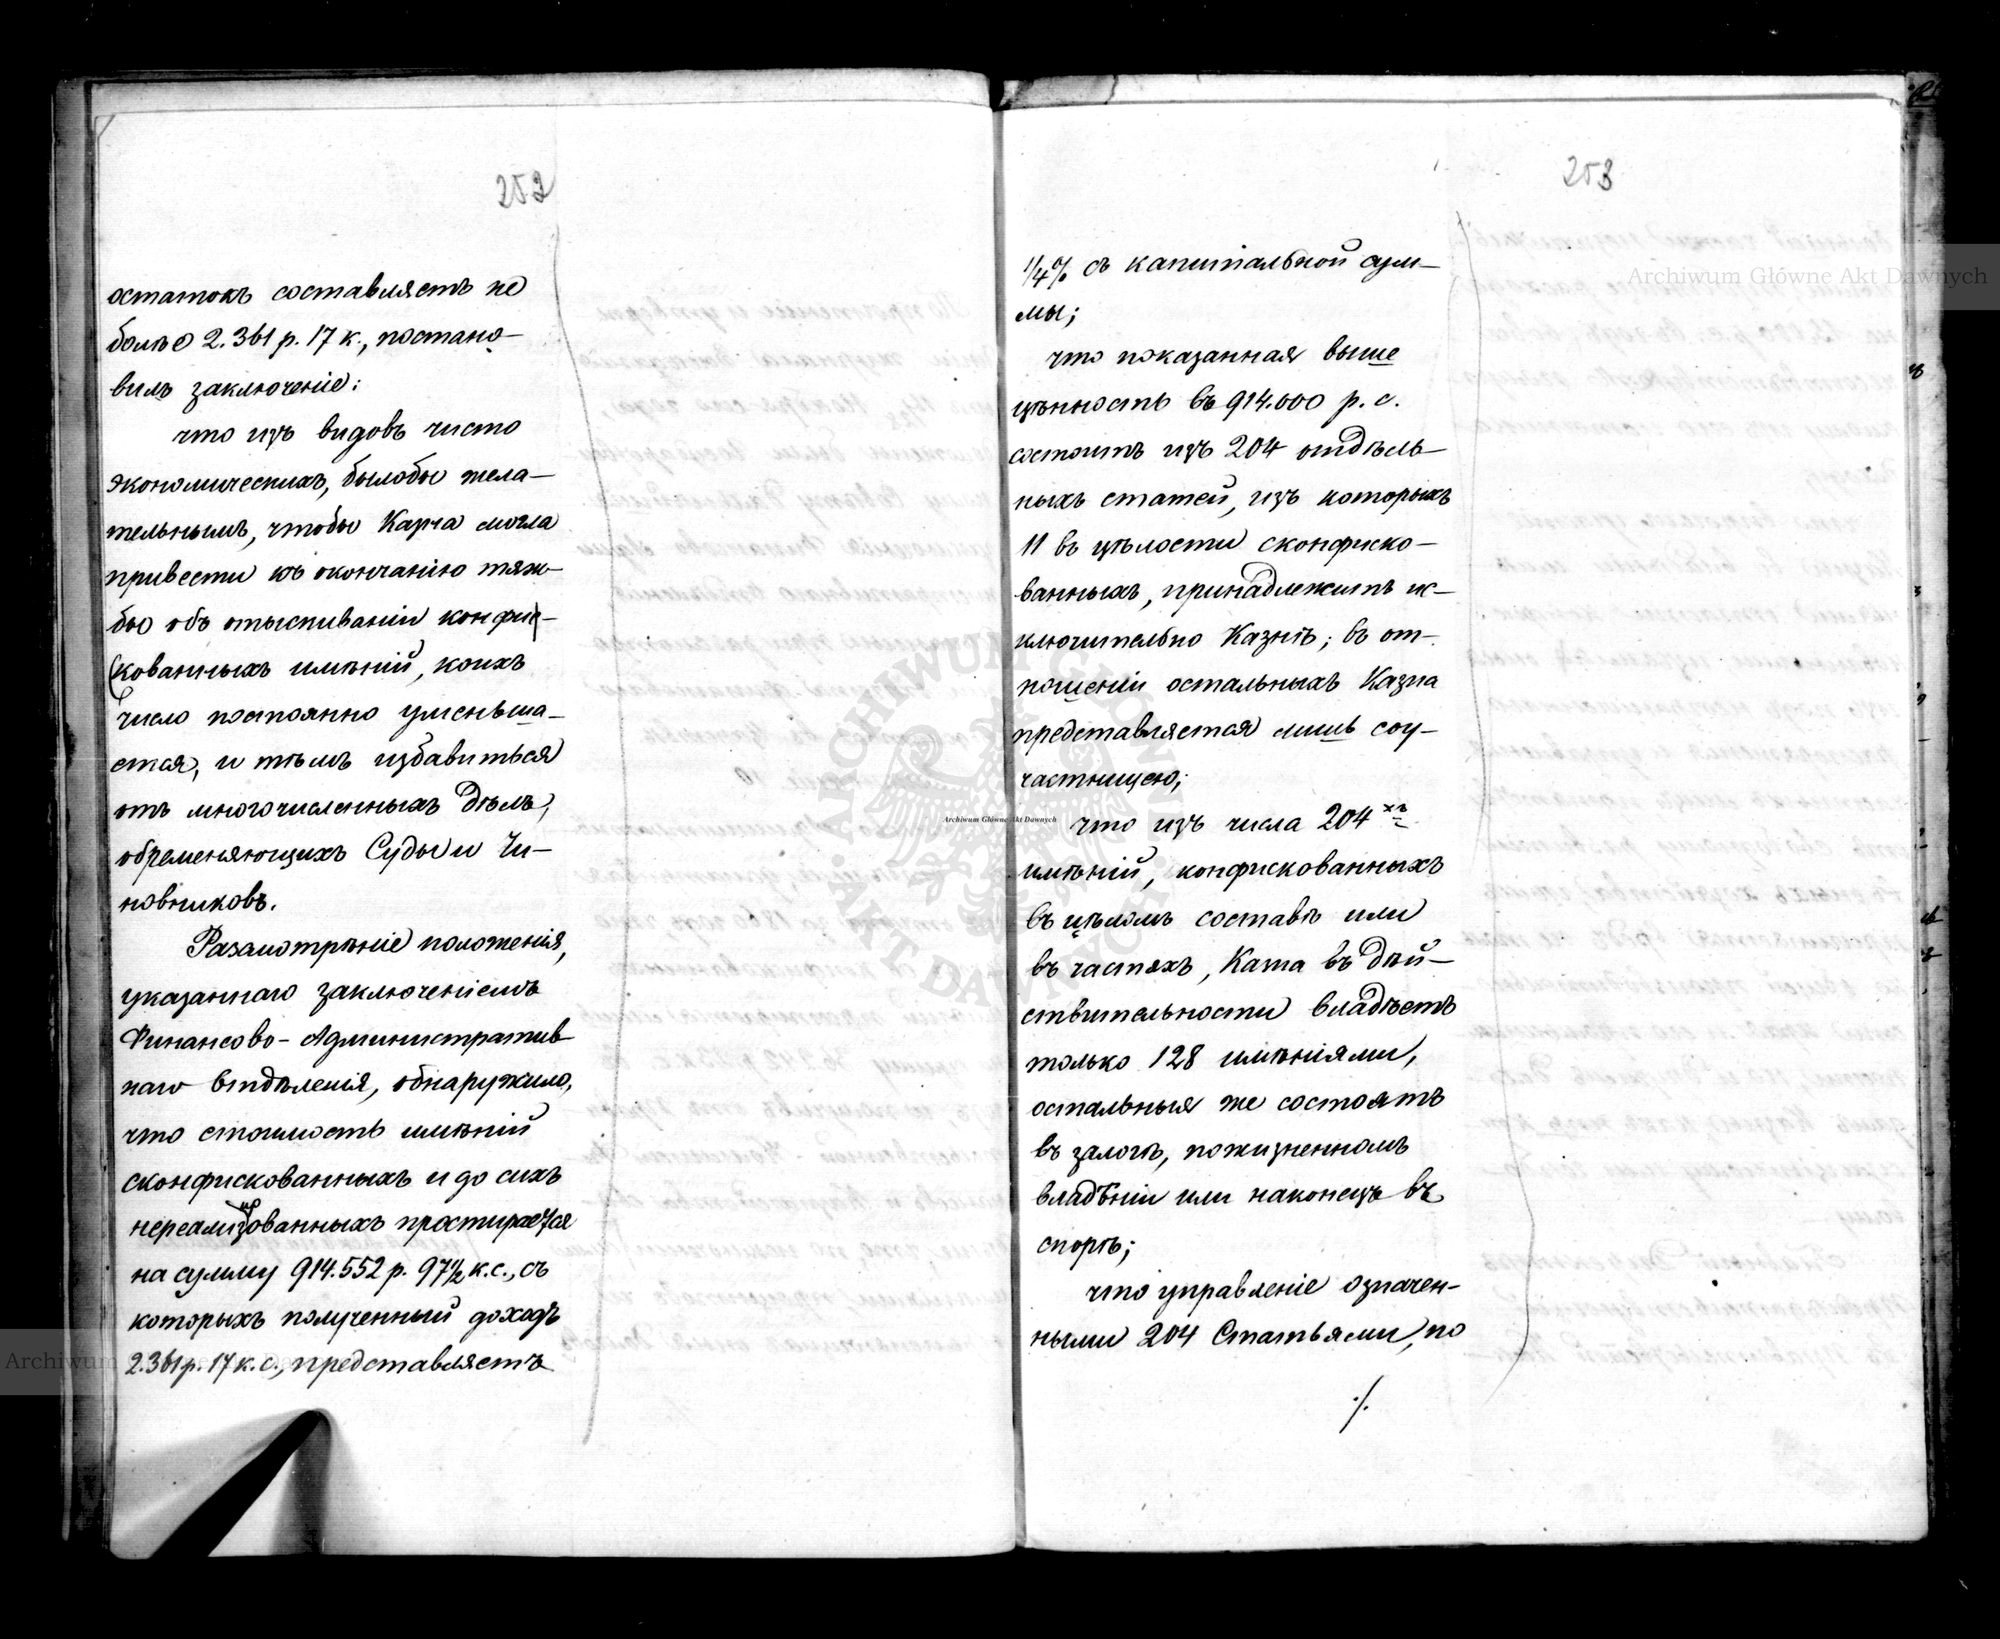 252
остатокъ составляетъ не
болѣе 2.361 р. 17 к., постано-
вилъ заключеніе:
что изъ видовъ чисто
экономическихъ, былобы жела-
тельнымъ, чтобы Казна могла
привести къ окончанію тяж-
бы объ отыскиваніи конфис-
кованныхъ имѣній, коихъ
число постоянно уменьша-
ется, и тѣмъ избавиться
отъ многочисленныхъ дѣлъ,
обременяющихъ Суды и Чи-
новниковъ.
Разсмотрѣніе положенія,
указаннаго заключеніемъ
Финансово-Административ
наго Отдѣленія, обнаружило,
что стоимость имѣній
сконфискованныхъ и до сихъ
нереализованныхъ простирается
на сумму 914.552 р. 97½ к.с., съ
которыхъ полученный доходъ
2.361 р. 17 к. с., представляетъ
253
1/4% съ капитальной сум-
мы;
что показанная выше
цѣнность въ 914.000 р. с.
состоитъ изъ 204 отдѣль-
ныхъ статей, изъ которыхъ
11 въ цѣлости сконфиско-
ванныхъ, принадлежитъ ис-
ключительно Казнѣ; въ от-
ношеніи остальныхъ Казна
представляется лишь соу-
частницею;
что изъ числа 204 хъ
имѣній, конфискованныхъ
въ цѣломъ составѣ или
въ частяхъ, Казна въ дѣй-
ствительности владѣетъ
только 128 имѣніями,
остальныя же состоятъ
въ залогѣ, пожизненномъ
владѣніи или наконецъ въ
спорѣ;
что управленіе означен-
ными 204 Статьями, по
./.
Archiwum Główne Akt Dawnych
Archiwum Główne Akt Dawnych